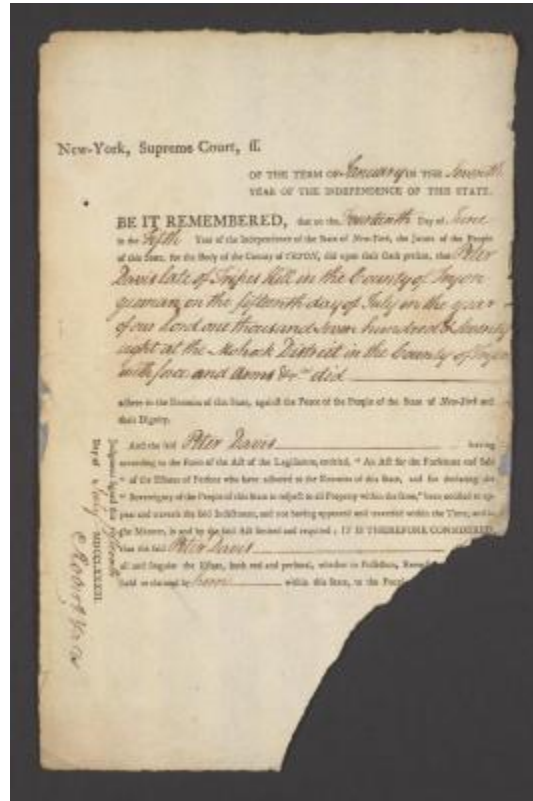 New-York, Supreme Court, ss.
OF THE TERM OF January IN THE Seventh
YEAR OF THE INDEPENDENCE OF THIS STATE.
BE IT REMEMBERED, that on the Fourteenth Day of June
in the Fifth Year of the Independence of the State of New-York, the Jurors of the People
of this State, for the Body of the County of TRYON, did upon their Oath present, that Peter
Davis late of Tripes Hill in the County of Tryon
yeoman on the fifteenth day of July in the year
of our Lord one thousand seven hundred & Seventy
eight at the Mohock District in the County of Tryon
with force and Arms &c. did
adhere to the Enemies of this State, against the Peace of the People of the State of New-York and
their Dignity.
And the said Peter Davis having
according to the Form of the Act of the Legislature, entitled, "An Act for the Forfeiture and Sale
"of the Estates of Persons who have adhered to the Enemies of this State, and for declaring the
"Sovereignty of the People of this State in respect to all Property within the same," been notified to ap-
pear and traverse the said Indictment, and not having appeared and traversed within the Time, and in
the Manner, in and by the said Act limited and required; IT IS THEREFORE CONSIDERED
that the said Peter Davis
all and singular the Estate, both real and personal, whether in Possession,
held or claimed by him within this State, to the People
Judgment signed the fifteenth
Day of July MDCCLXXXIII.
Robert Yates